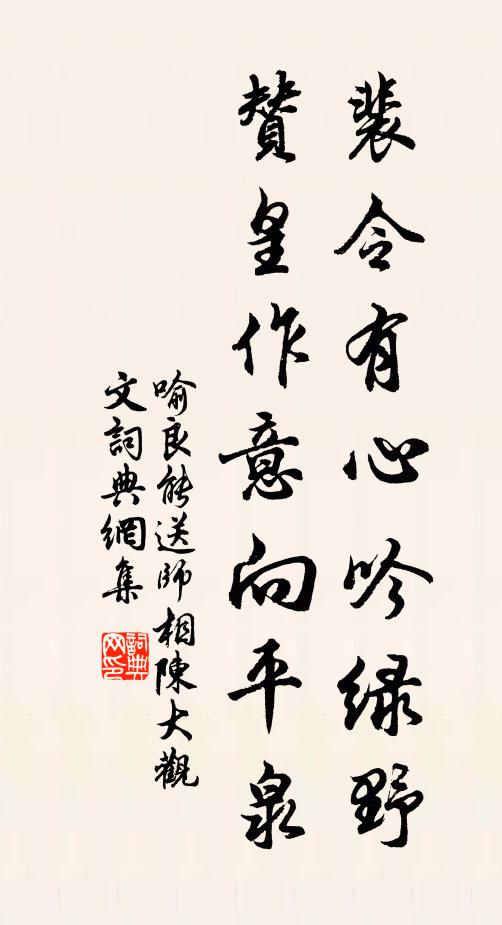 裴令有心吟绿野
贊皇作意向平泉
喻良能送師相陳大觀
文詞典網集
詞典網印